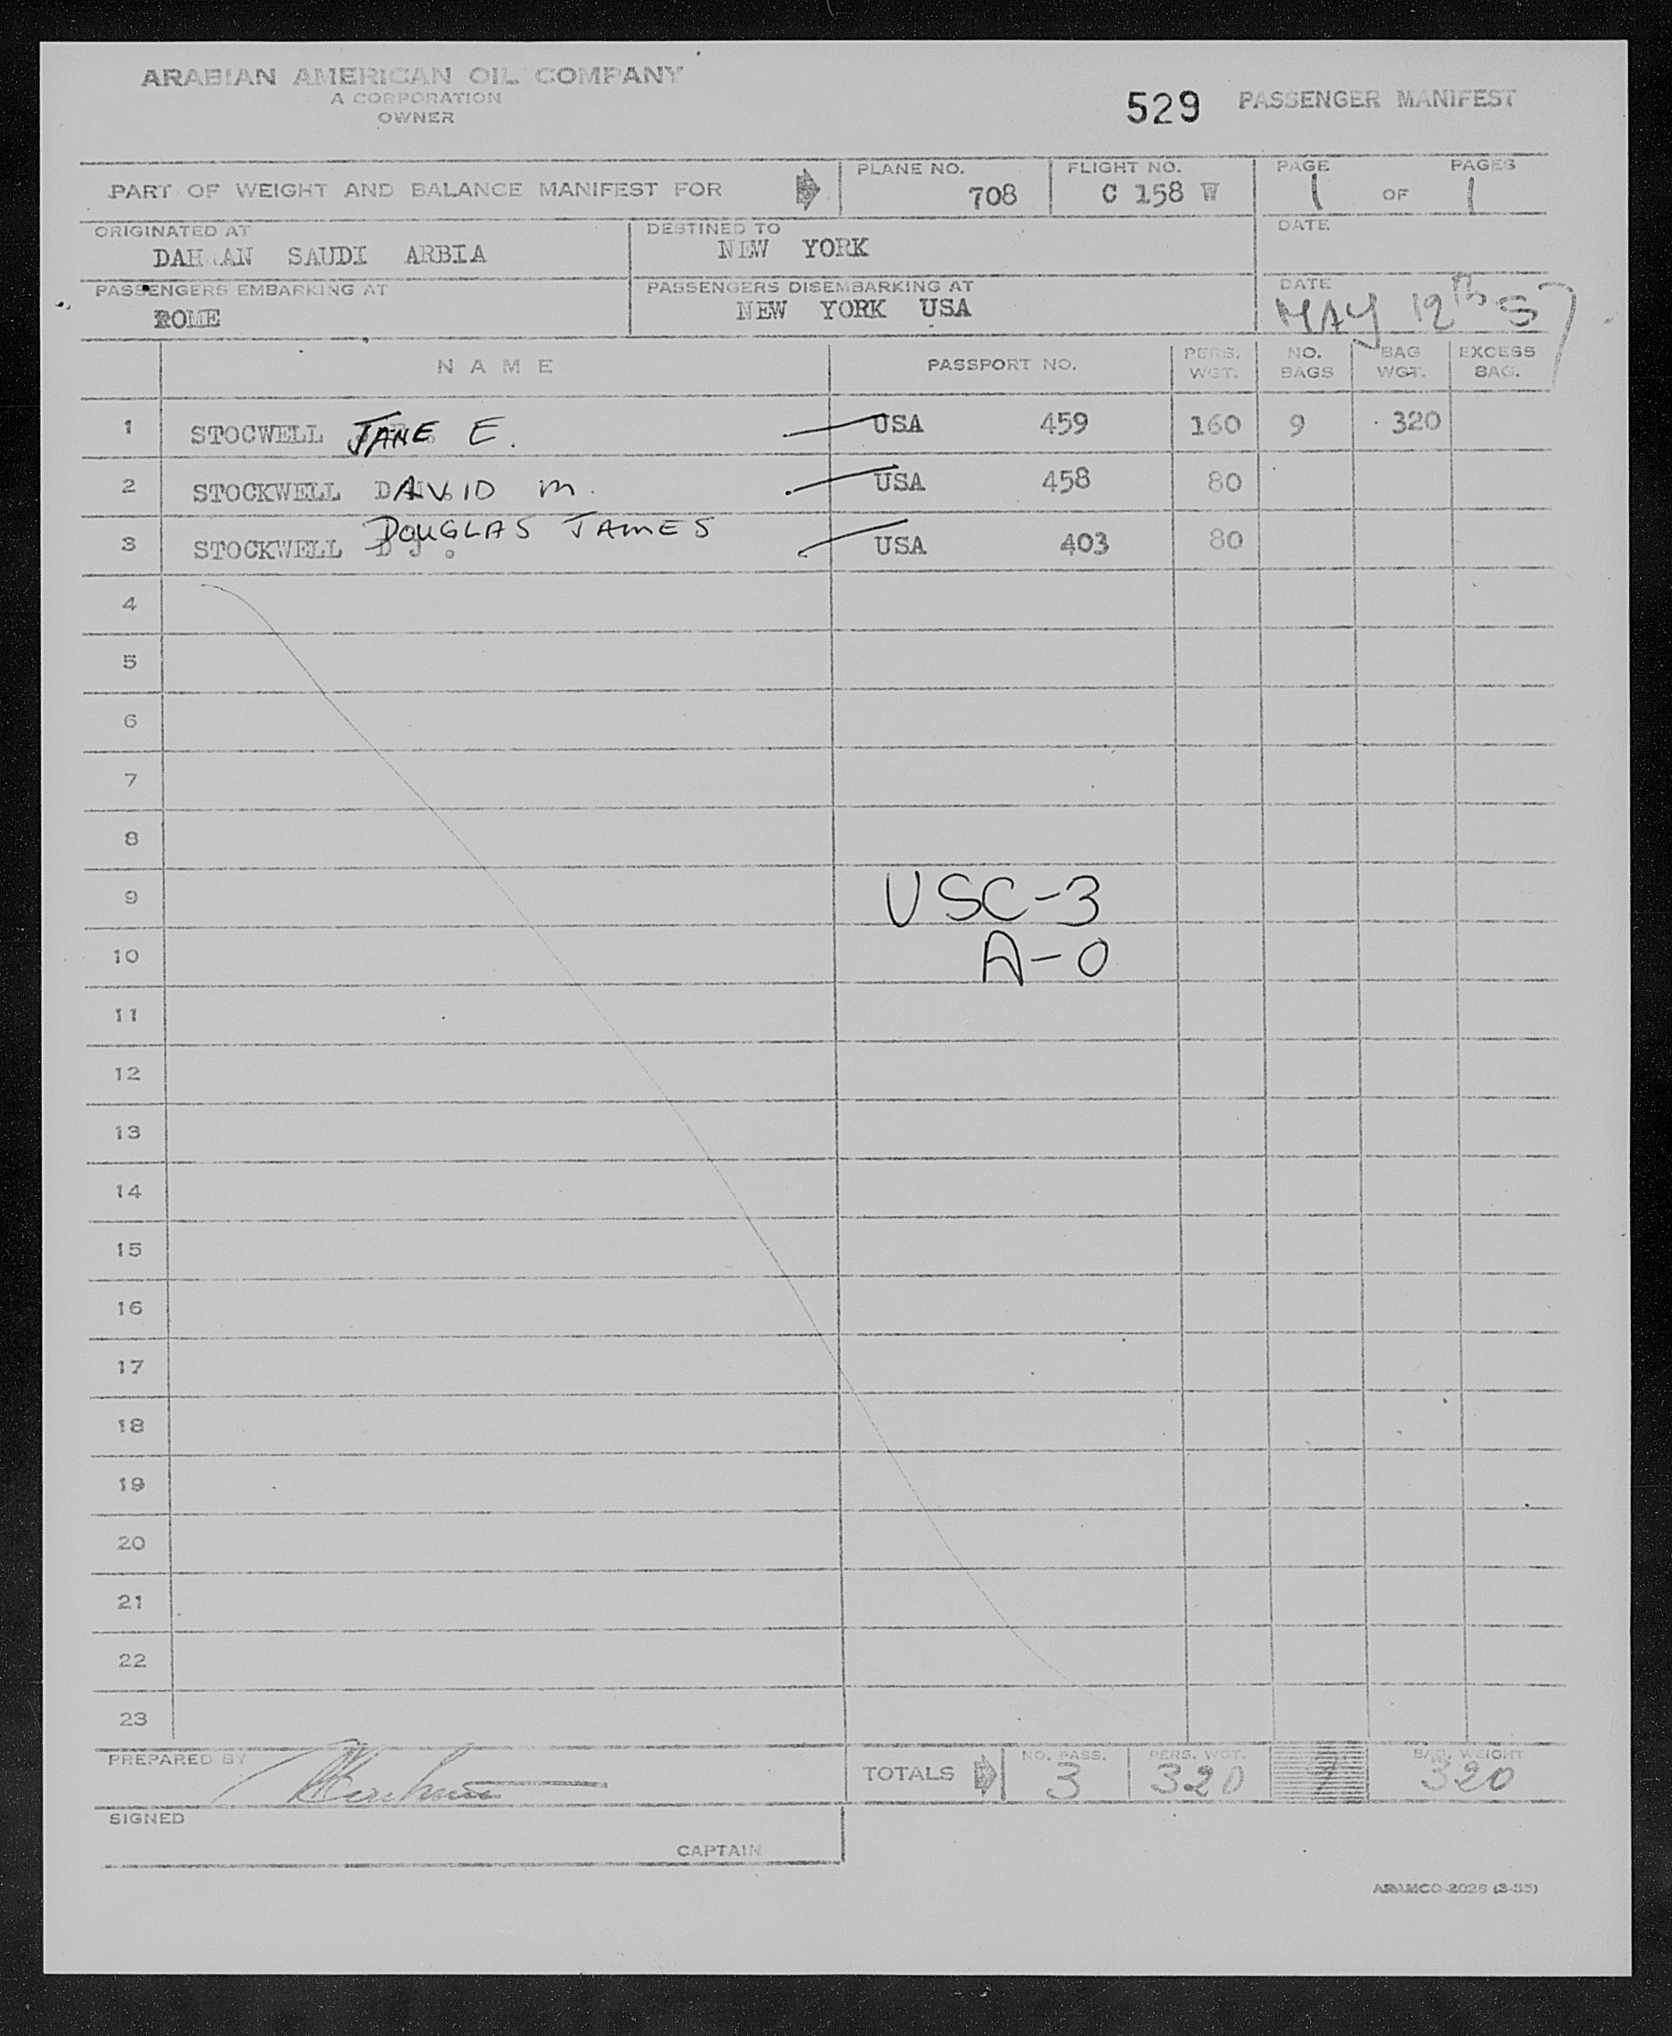 ARABIAN AMERICAN OIL COMPANY
A CORPORATION
OWNER
529 PASSENGER MANIFEST
PART OF WEIGHT AND BALANCE MANIFEST FOR
PLANE NO. FLIGHT NO. PAGE PAGES
708 C 158 W 1 OF 1
ORIGINATED AT DESTINED TO DATE
SAUDI ARBIA NEW YORK
PASSENGERS EMBARKING AT PASSENGERS DISEMBARKING AT DATE
ROME NEW YORK USA MAY 12th 57
NAME PASSPORT NO. PERS. WGT. NO. BAGS BAG WGT. EXCESS BAG.
1 STOCWELL JANE E. USA 459 160 9 320
2 STOCKWELL DAVID M. USA 458 80
3 STOCKWELL DOUGLAS JAMES USA 403 80
4
5
6
7
8
9 USC-3
10 A-0
11
12
13
14
15
16
17
18
19
20
21
22
23
PREPARED BY TOTALS NO. PASS. PERS. WGT. BAG. WEIGHT
3 320 320
SIGNED
CAPTAIN
ARAMCO 2026 (3-55)